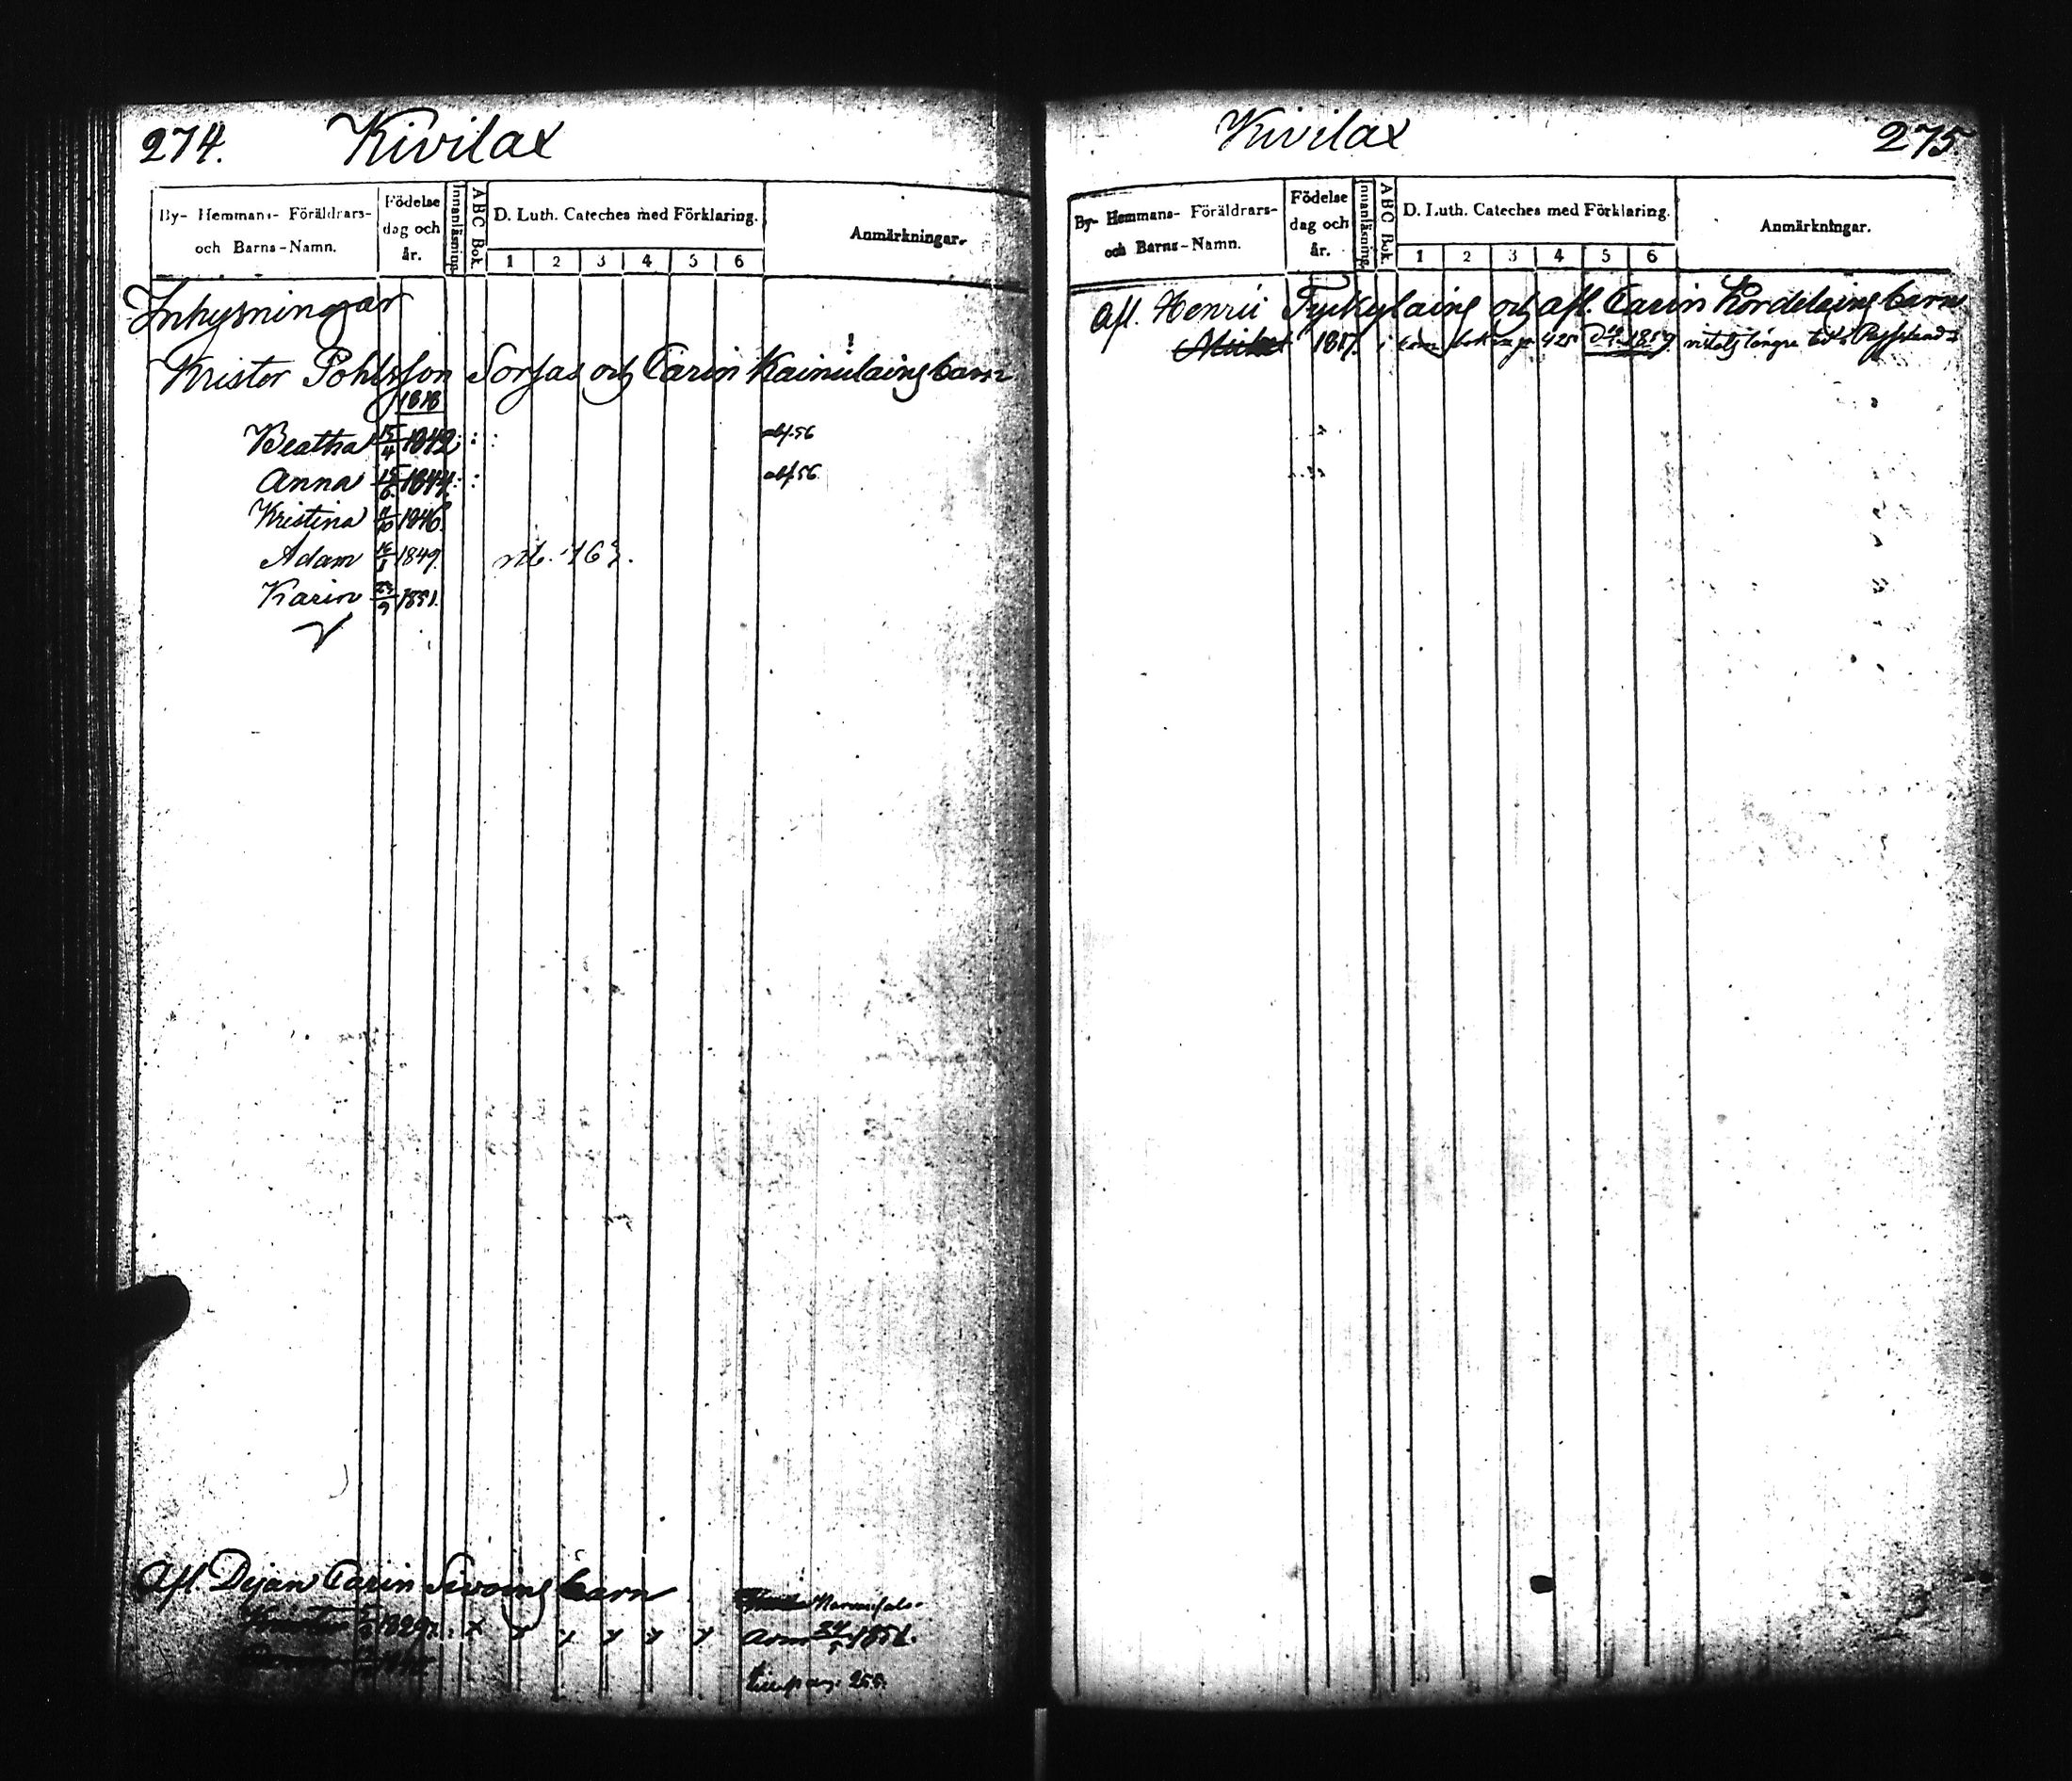 274. Kivilax
By- Hemmans- Föräldrars-
och Barns-Namn.
Födelse
dag och
år.
Innanläsning.
A B C Bok.
D. Luth. Cateches med Förklaring.
1 2 3 4 5 6
Anmärkningar.
Inhysningar
Krister Pohlsson Sorsas och Carin Kainulaing barn
1818
Beatha 15/4 1842 abf. 56
Anna 1844 abf. 56
Kristina 1846
Adam 16/1 1849.
Karin 1851.
Afl Dejan Carin barn
1829
1851.
pag. 255.
Kivilax 275
By- Hemmans- Föräldrars-
och Barns-Namn.
Födelse
dag och
år.
Innanläsning.
A B C Bok.
D. Luth. Cateches med Förklaring.
1 2 3 4 5 6
Anmärkningar.
Afl. Henric Tyckylaing och afl. Carin Kordelaing barn
Michel 1857. 1859. längre tid i Ryssland